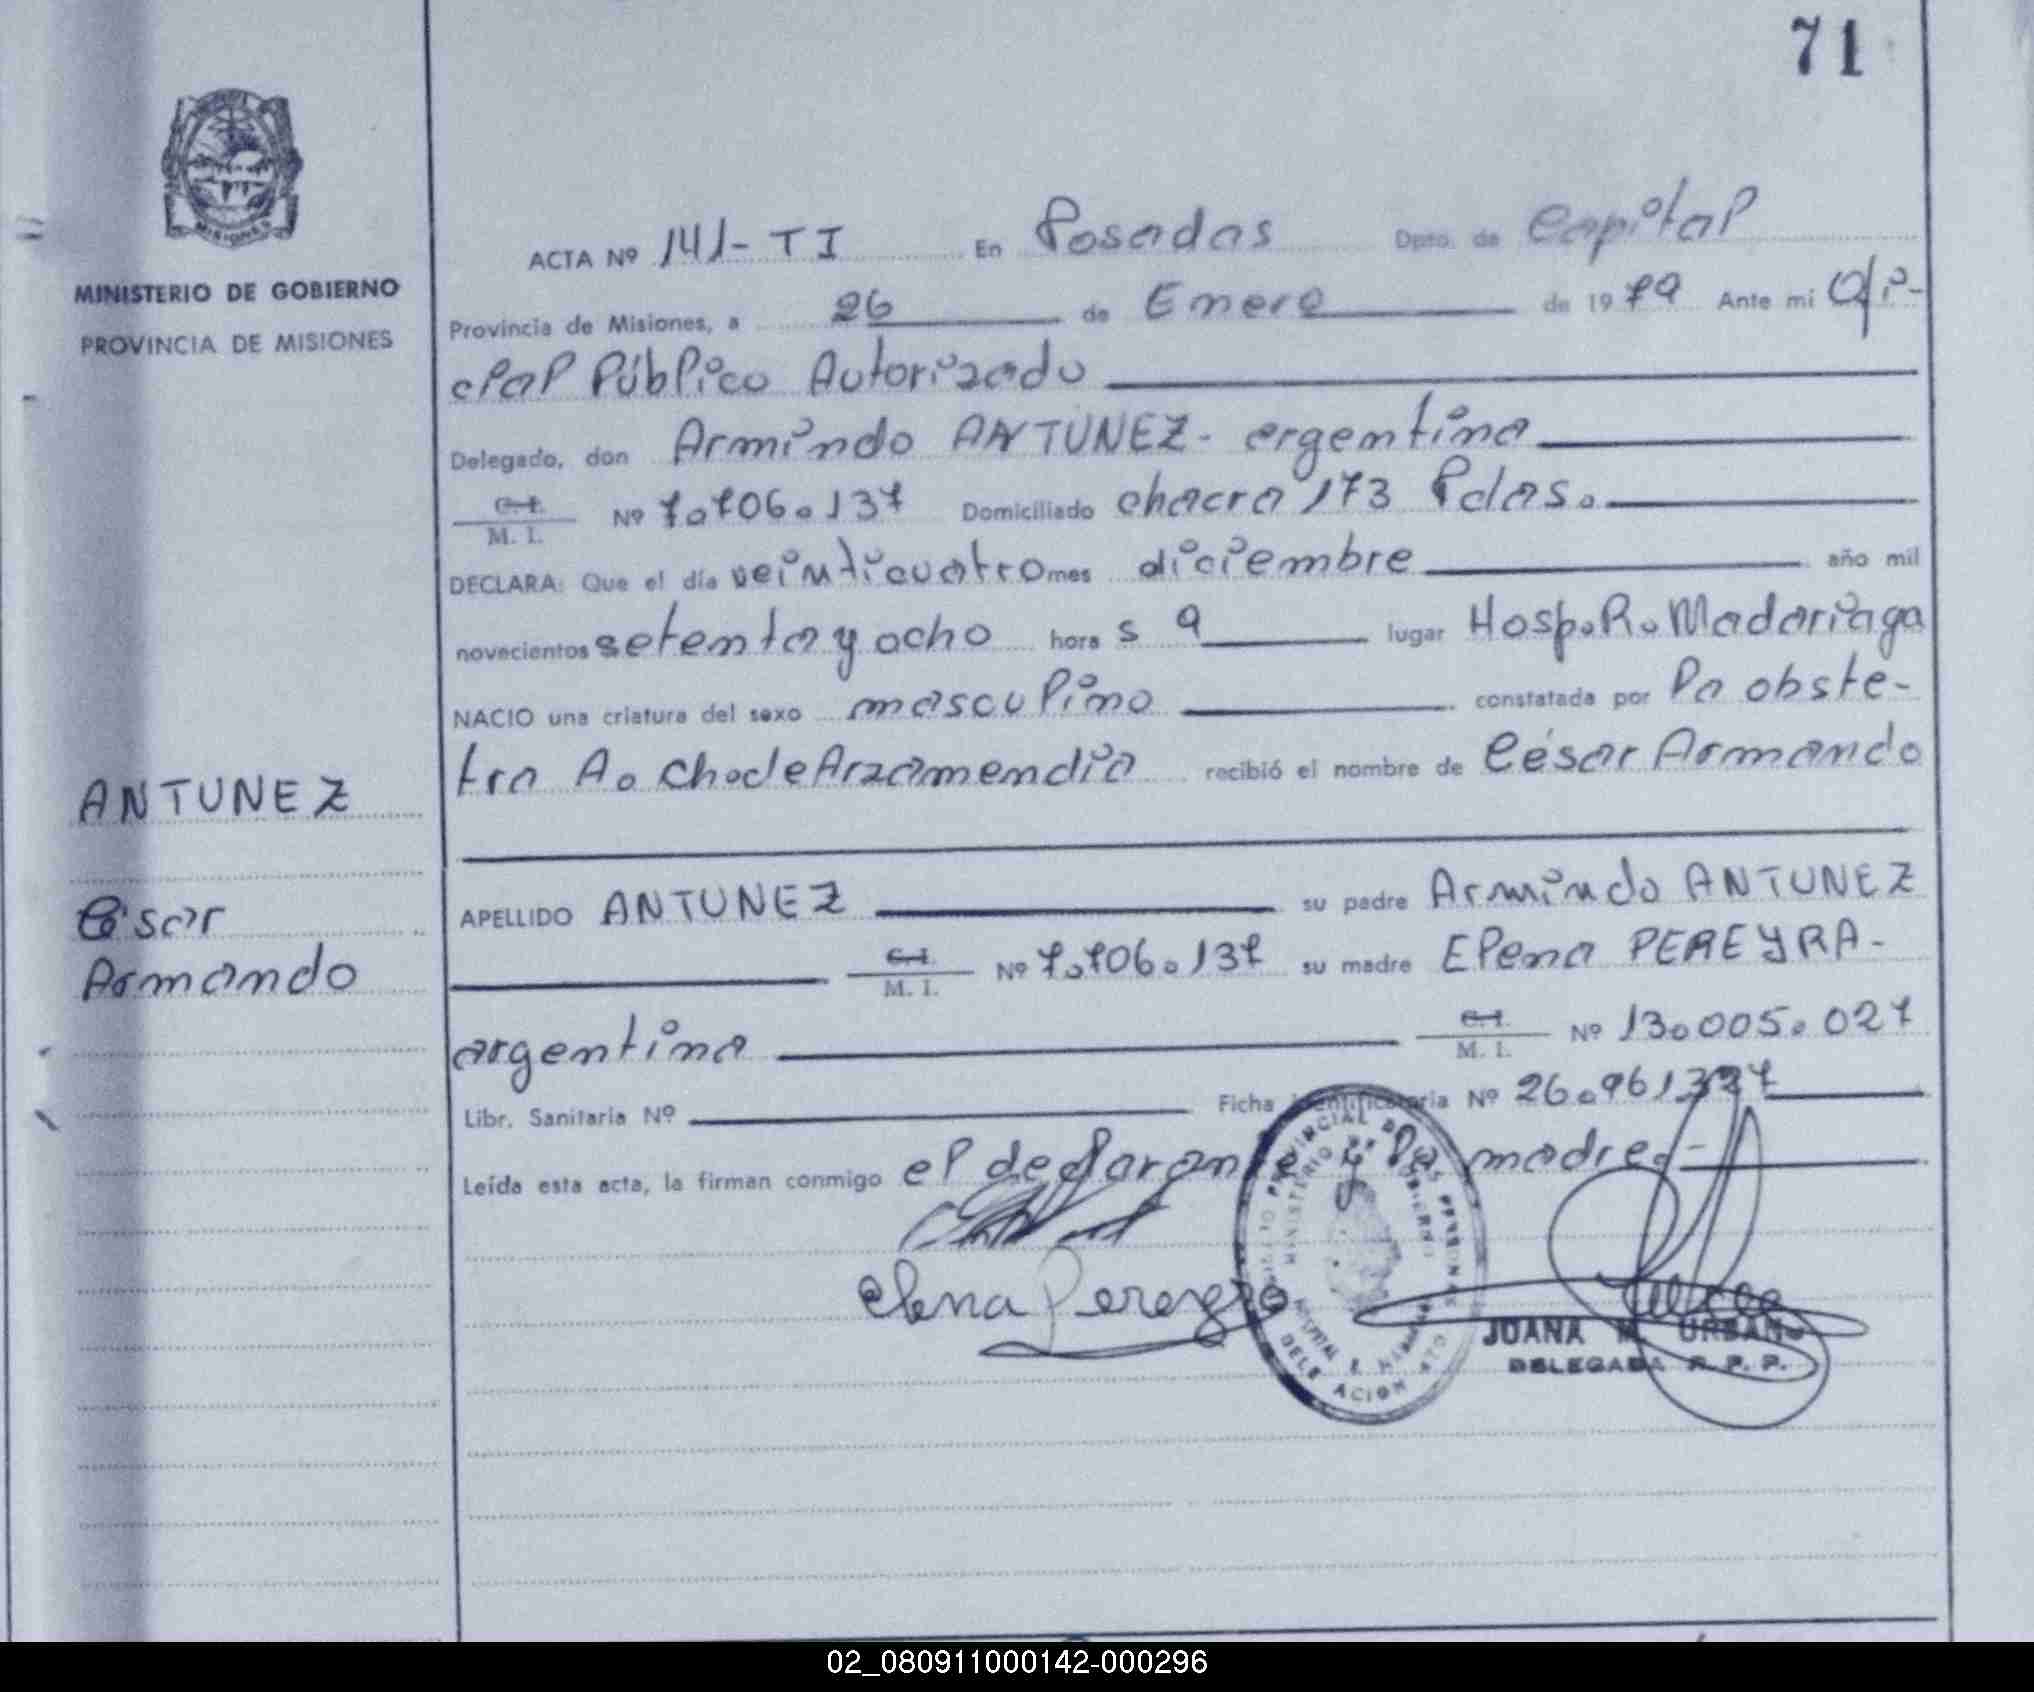 71
MISIONES
MINISTERIO DE GOBIERNO
PROVINCIA DE MISIONES
ANTUNEZ
César
Armando
ACTA Nº 141-TI En Posadas Dpto. de Capital
Provincia de Misiones, a 26 de Enero de 1979 Ante mi Ofi-
cial Público Autorizado
Delegado, don Armindo ANTUNEZ- argentino
C.I. M. I. Nº 7.706.137 Domiciliado chacra 173 Pdas.
DECLARA: Que el día veinticuatro mes diciembre año mil
novecientos setenta y ocho hora s 9 lugar Hosp.R.Madariaga
NACIO una criatura del sexo masculino constatada por la obste-
tra A. Ch.de Arzamendia recibió el nombre de César Armando
APELLIDO ANTUNEZ su padre Armindo ANTUNEZ
C.I. M. I. Nº 7.706.137 su madre Elena PEREYRA-
argentina C.I. M. I. Nº 13.005.027
Libr. Sanitaria Nº Ficha identificatoria Nº 26.961.327
Leída esta acta, la firman conmigo el declarante y la madre.-
Elena Pereyra
JUANA M. URBAN
DELEGADA R. P. P.
02_080911000142-000296